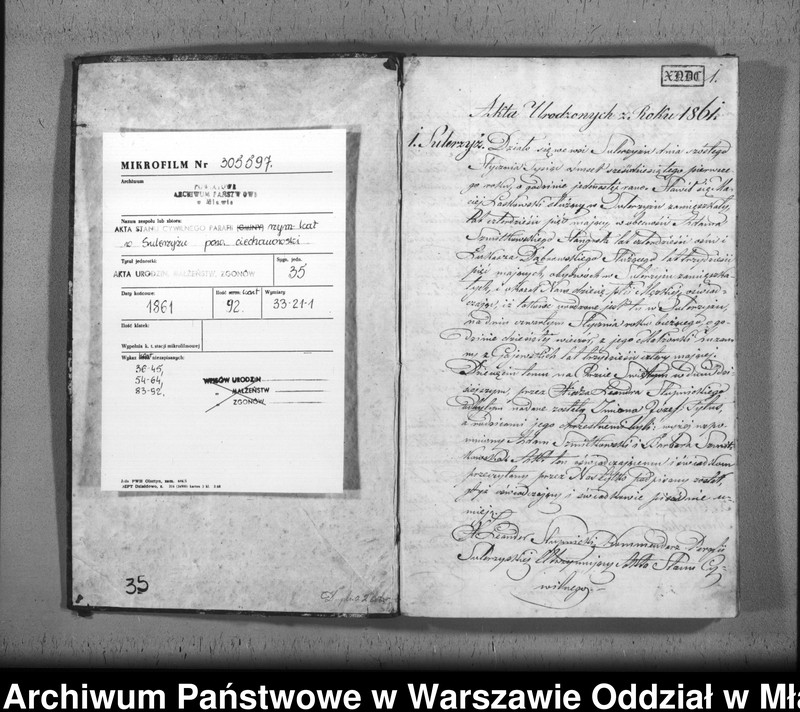 MIKROFILM Nr 305597.
Archiwum
POWIATOWE
ARCHIWUM PAŃSTWOWE
w Mławie
Nazwa zespołu lub zbioru:
AKTA STANU CYWILNEGO PARAFII (GMINY) rzym-kat
w Sulerzyżu pow. ciechanowski
Tytuł jednostki:
AKTA URODZIN, MAŁŻEŃSTW, ZGONÓW
Sygn. jedn.
35
Daty końcowe:
1861
Ilość stron:
92.
Wymiary
33-21-1
Ilość klatek:
Wypełnia k. i. stacji mikrofilmowej
Wykaz kart niezapisanych:
36-45,
54-64,
83-92.
WPISÓW URODZIN
MAŁŻEŃSTW
ZGONÓW
35
XNDC 1.
Akta Urodzonych z Roku 1861.
1. Sulerzyż. Działo się we wsi Sulerzyżu dnia szóstego
Stycznia Tysiąc ośmset sześćdziesiątego pierwsze-
go roku, o godzinie jedenastej rano. Stawił się Ma-
ciej służący w Sulerzyżu zamieszkały,
lat czterdzieści pięć mający w obecności Adama
Szmitkowskiego lat czterdzieści ośm i
Dąbrowskiego Służącego lat trzydzieści
pięć mających, obydwóch w Sulerzyżu zamieszka-
łych, i okazał Nam dziecię płci Męzkiej, oświad-
czając, iż takowe urodzone jest tu w Sulerzyżu,
na dniu czwartym Stycznia roku bieżącego, o go-
dzinie dziesiątej wieczór, z jego Małżonki Zuzan-
ny z Gajewskich lat trzydzieści cztery mającej.
Dziecięciu temu na Chrzcie Świętym w dniu dzi-
siejszym, przez Xiędza Leandra Słupnickiego
odbytym nadane zostały Imiona Józef, Tytus,
a rodzicami jego chrzestnemi byli: wyżej wspo-
mniony Adam Szmitkowski i Barbara Szmit-
kowska. Akt ten oświadczającemu i świadkom
przeczytany przez Nas tylko podpisany został,
gdyż oświadczający i świadkowie pisać nie u-
mieją.
X Leander Słupnicki Kommendarz Parafii
Sulerzyskiej Utrzymujący Akta Stanu Cy-
wilnego.
Archiwum Państwowe w Warszawie Oddział w Mła